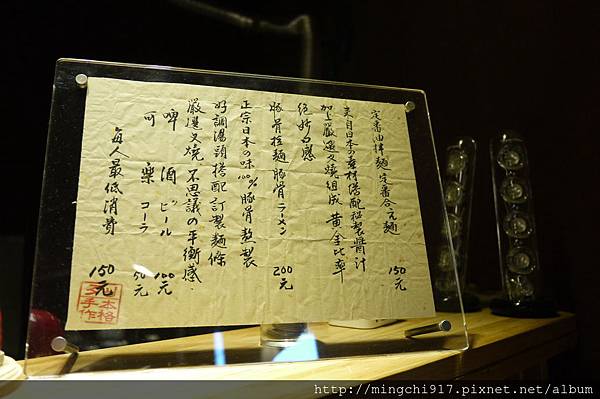 定番油拌麵 定番合え麺 150元
来自日本の素材搭配秘製醬汁
加上嚴選叉燒組成 黄金比率
絕妙口感
豚骨拉麵 豚骨ラーメン 200元
正宗日本の味 100% 豚骨熬製
好調湯頭搭配訂製麵條
嚴選叉燒 不思議の平衡感
啤酒 ビール 100元
可樂 コーラ 50元
每人最低消費 150元
本格
手作
http://mingchi917.pixnet.net/album